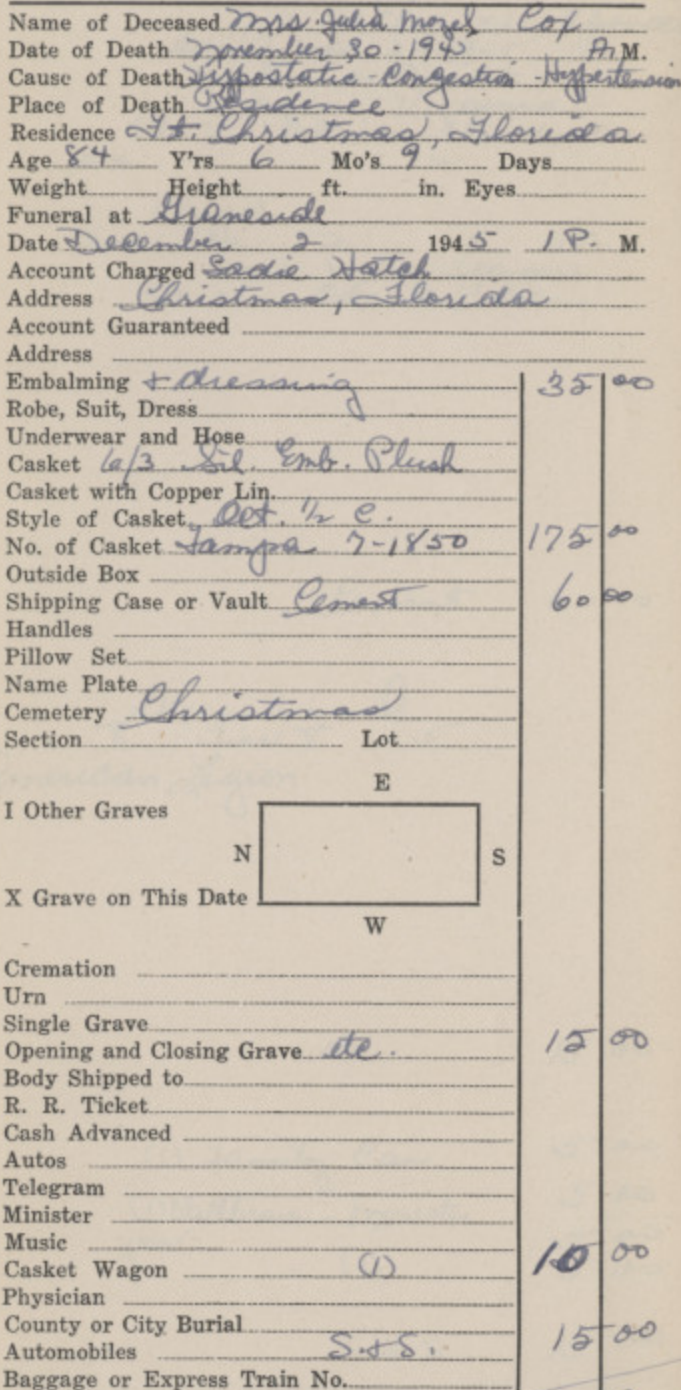 Name of Deceased Mrs. Julia Mozel Cox
Date of Death November 30-194 A.M.
Cause of Death Hypostatic Congestion - Hypertension
Place of Death Residence
Residence Ft. Christmas, Florida
Age 84 Y'rs 6 Mo's 9 Days
Weight Height ft. in. Eyes
Funeral at Graveside
Date December 2 1945 1 P. M.
Account Charged Sadie Hatch
Address Christmas, Florida
Account Guaranteed
Address
Embalming + dressing 35 00
Robe, Suit, Dress
Underwear and Hose
Casket 6/3 Sil. Emb. Plush
Casket with Copper Lin.
Style of Casket Oct. 1/2 C.
No. of Casket Tampa 7-1850 175 00
Outside Box
Shipping Case or Vault Cement 60 00
Handles
Pillow Set
Name Plate
Cemetery Christmas
Section Lot
E
I Other Graves
N S
X Grave on This Date
W
Cremation
Urn
Single Grave
Opening and Closing Grave etc. 15 00
Body Shipped to
R. R. Ticket
Cash Advanced
Autos
Telegram
Minister
Music
Casket Wagon (1) 10 00
Physician
County or City Burial
Automobiles S.+S. 15 00
Baggage or Express Train No.